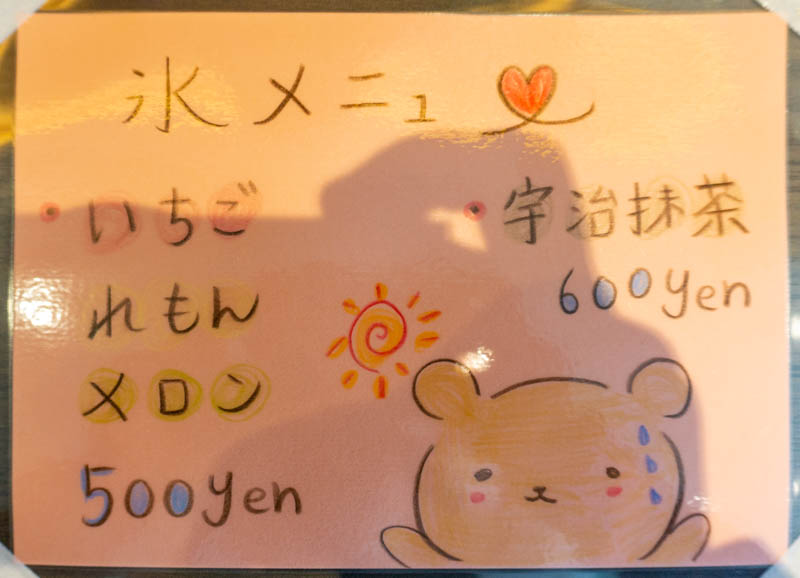 氷メニュ
・いちご
れもん
メロン
500yen
・宇治抹茶
600yen